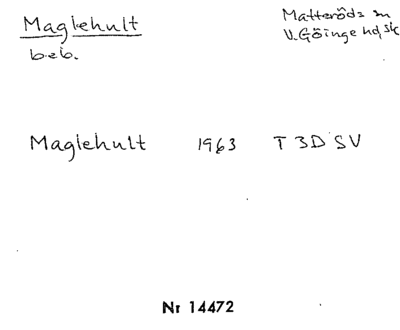 Maglehult
beb.
Matteröds sn
V. Göinge hd, Sk
Maglehult 1963 T 3D SV
Nr 14472